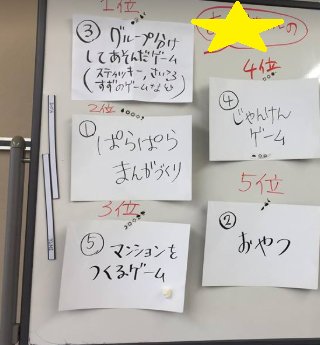 1位
③ グループ分け
してあそんだゲーム
(スティッキー、さいころ
すずのゲームなど)
2位
① ぱらぱら
まんがづくり
3位
⑤ マンションを
つくるゲーム
の
4位
④ じゃんけん
ゲーム
5位
②
おやつ